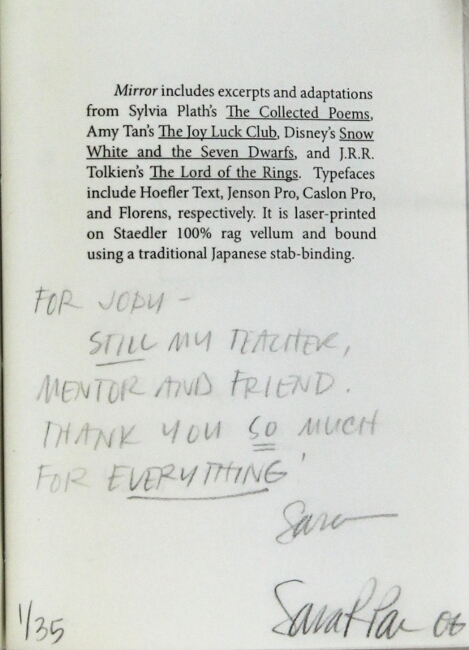 Mirror includes excerpts and adaptations
from Sylvia Plath's The Collected Poems,
Amy Tan's The Joy Luck Club, Disney's Snow
White and the Seven Dwarfs, and J.R.R.
Tolkien's The Lord of the Rings. Typefaces
include Hoefler Text, Jenson Pro, Caslon Pro,
and Florens, respectively. It is laser-printed
on Staedler 100% rag vellum and bound
using a traditional Japanese stab-binding.
FOR JODY –
STILL MY TEACHER,
MENTOR AND FRIEND.
THANK YOU SO MUCH
FOR EVERYTHING!
Sara
Sara 06
1/35